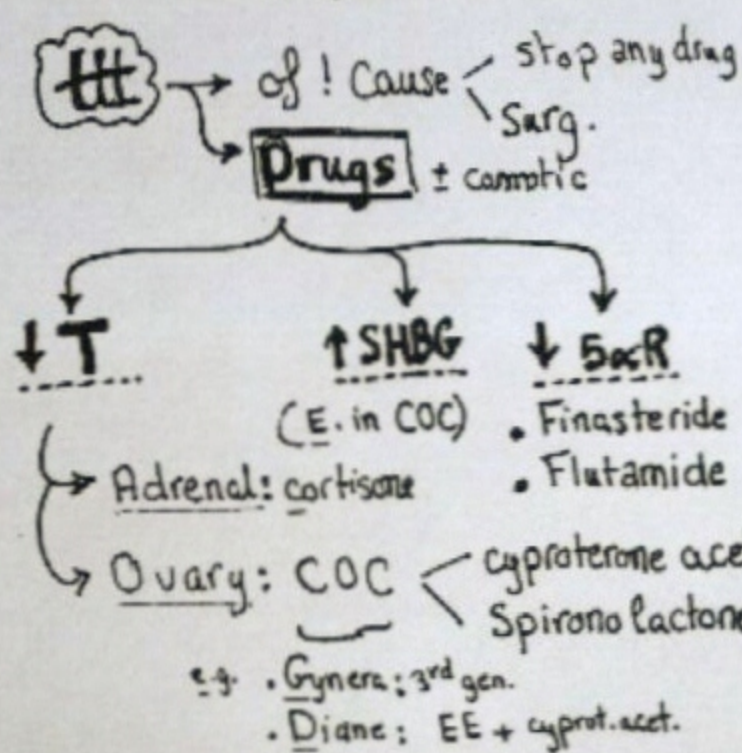 ttt → of ! Cause stop any drug
Surg.
Drugs ± cosmotic
↓ T ↑ SHBG ↓ 5αR
(E. in COC) . Finasteride
Adrenal: cortisone . Flutamide
Ovary: COC cyproterone ace
Spironolactone
e.g. . Gynera: 3rd gen.
. Diane: EE + cyprot. acet.